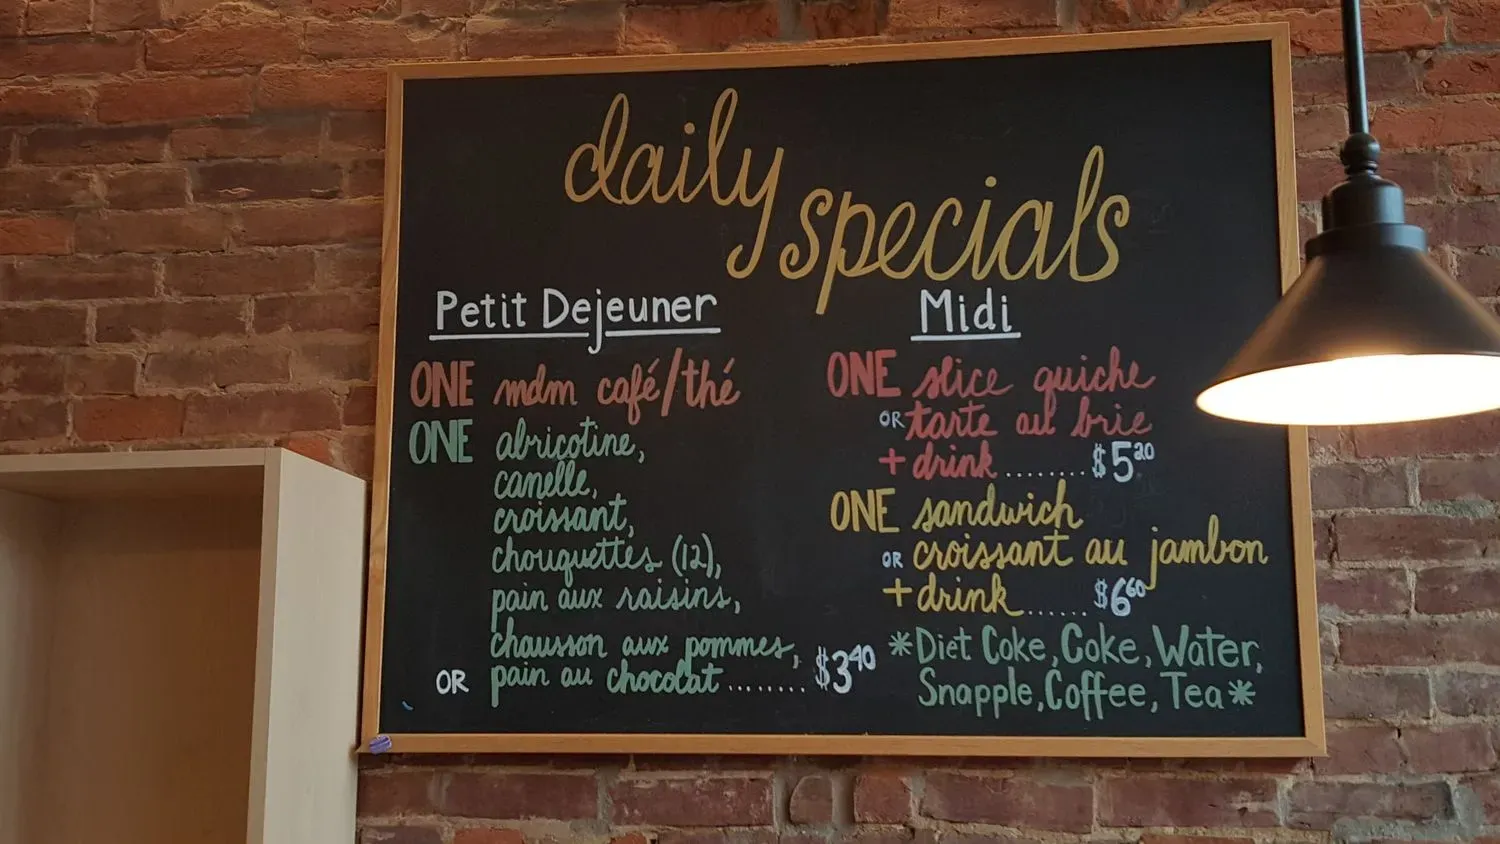 daily
specials
Petit Dejeuner
ONE mdm café/thé
ONE abricotine,
canelle,
croissant,
chouquettes (12),
pain aux raisins,
chausson aux pommes,
OR pain au chocolat ........ $3.40
Midi
ONE slice quiche
OR tarte au brie
+ drink ........ $5.20
ONE sandwich
OR croissant au jambon
+ drink ...... $6.60
*Diet Coke, Coke, Water,
Snapple, Coffee, Tea*